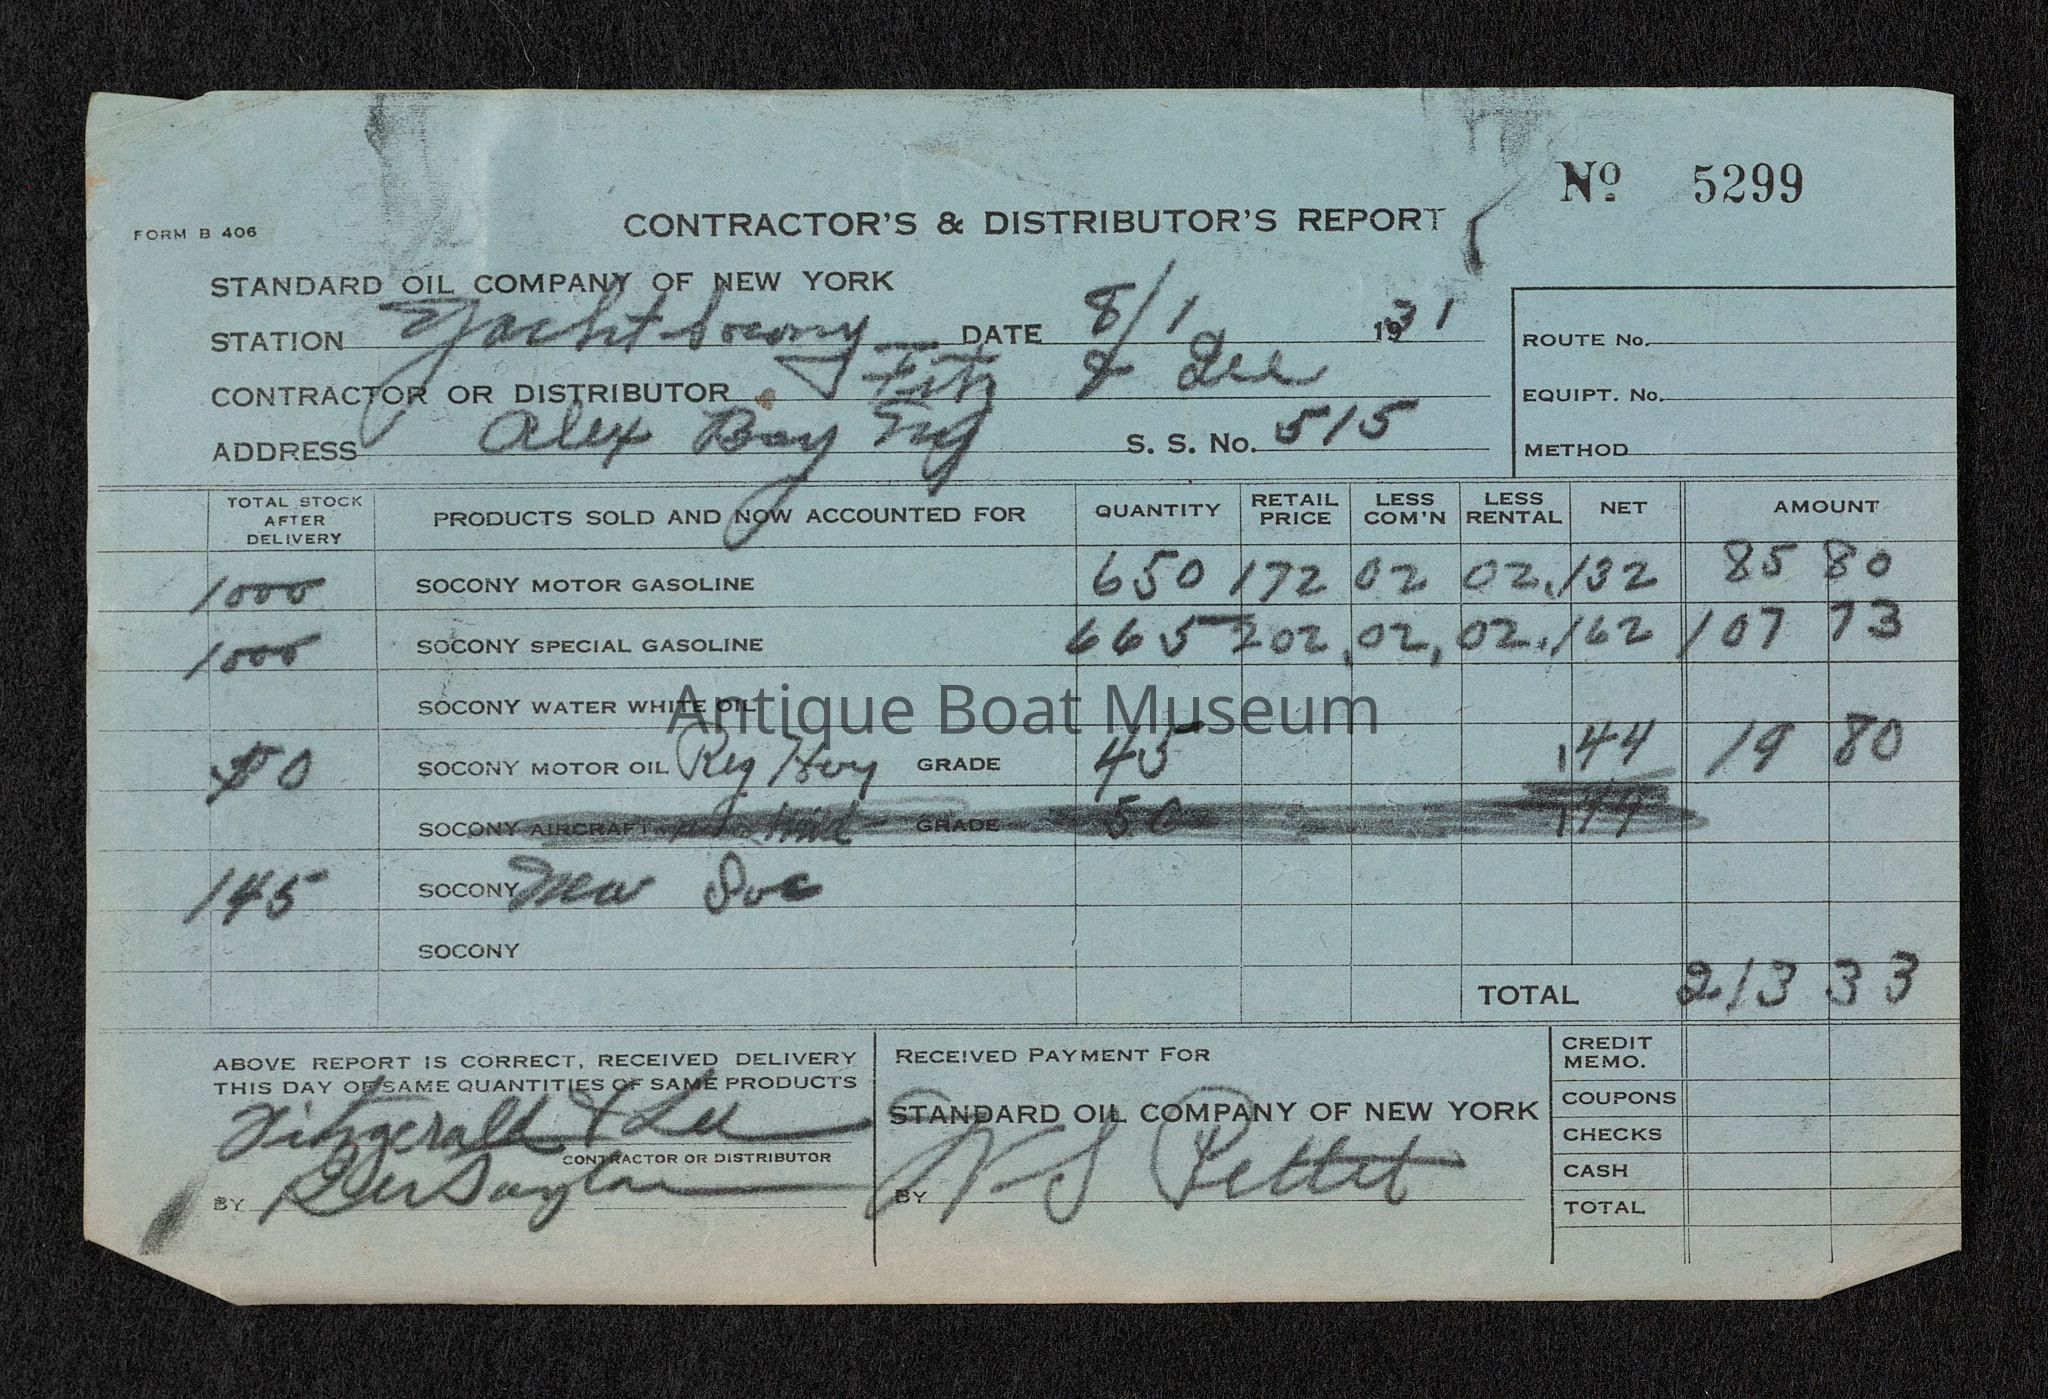 No 5299
FORM B 406
CONTRACTOR'S & DISTRIBUTOR'S REPORT
STANDARD OIL COMPANY OF NEW YORK
STATION Yacht Socony DATE 8/1 1931
ROUTE No.
CONTRACTOR OR DISTRIBUTOR Fitz & Lee
EQUIPT. No.
ADDRESS Alex Bay NY S. S. No. 515
METHOD
TOTAL STOCK AFTER DELIVERY PRODUCTS SOLD AND NOW ACCOUNTED FOR QUANTITY RETAIL PRICE LESS COM'N LESS RENTAL NET AMOUNT
1000 SOCONY MOTOR GASOLINE 650 172 02 02 .132 85 80
1000 SOCONY SPECIAL GASOLINE 665 202 .02 .02 .162 107 73
SOCONY WATER WHITE OIL
Antique Boat Museum
50 SOCONY MOTOR OIL Reg Hvy GRADE 45 .44 19 80
SOCONY AIRCRAFT GRADE 50
145 SOCONY New Soc
SOCONY
TOTAL 213 33
ABOVE REPORT IS CORRECT, RECEIVED DELIVERY
THIS DAY OF SAME QUANTITIES OF SAME PRODUCTS
Fitzgerald & Lee
CONTRACTOR OR DISTRIBUTOR
BY Taylor
RECEIVED PAYMENT FOR
STANDARD OIL COMPANY OF NEW YORK
BY N S Pettet
CREDIT MEMO.
COUPONS
CHECKS
CASH
TOTAL